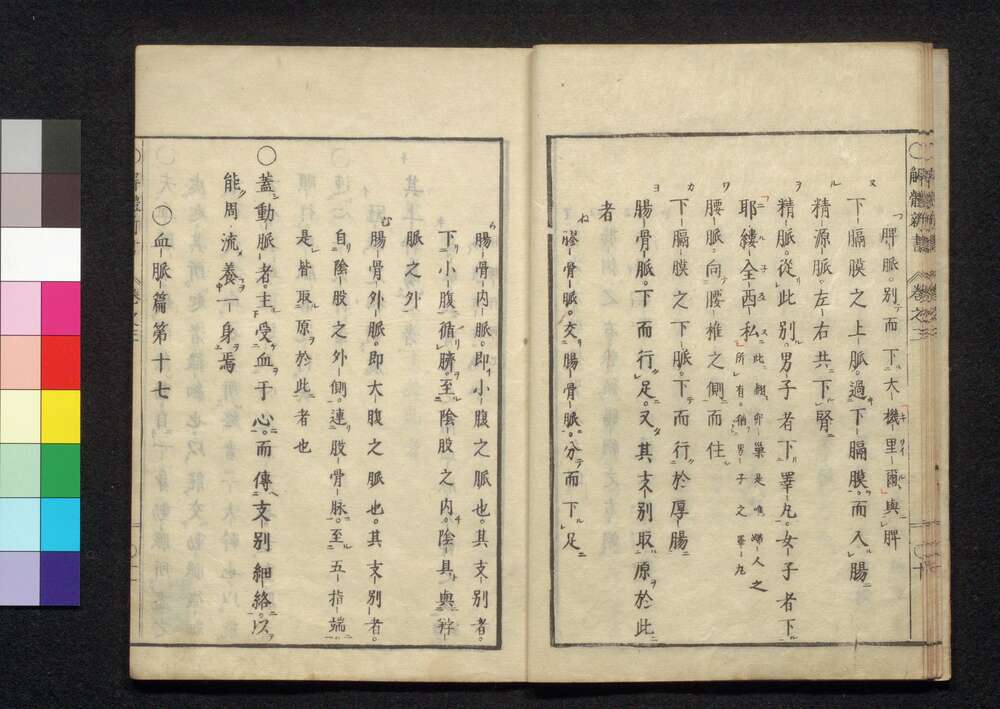 解體新書 卷之三
ツ 脾脈。別而下大機里爾與脾
ヌ 下膈膜之上脈。過下膈膜。而入腸
ル 精源脈。左右共下腎
ヲ 精脈。從此別。男子者下睪丸。女子者下
耶縷全西私 此翻卵巢是唯婦人之所有。猶男子之睪丸
ワ 腰脈向腰椎之側而住
カ 下膈膜之下脈。下而行於厚腸
ヨ 腸骨脈。下而行足。又其支別取原於此
者
ね 膠骨脈。交腸骨脈。分而下足
腸骨内脈。即小腹之脈也。其支別者。
下小腹。循臍。至陰股之内。陰具與
脈之外
む 腸骨外脈。即大腹之脈也。其支別者。
自陰股之外側。連股骨脈。至五指端
是皆取原於此者也
〇蓋動脈者。主受血于心。而傳支別細絡。以
能周流養一身焉
〇血脈篇第十七